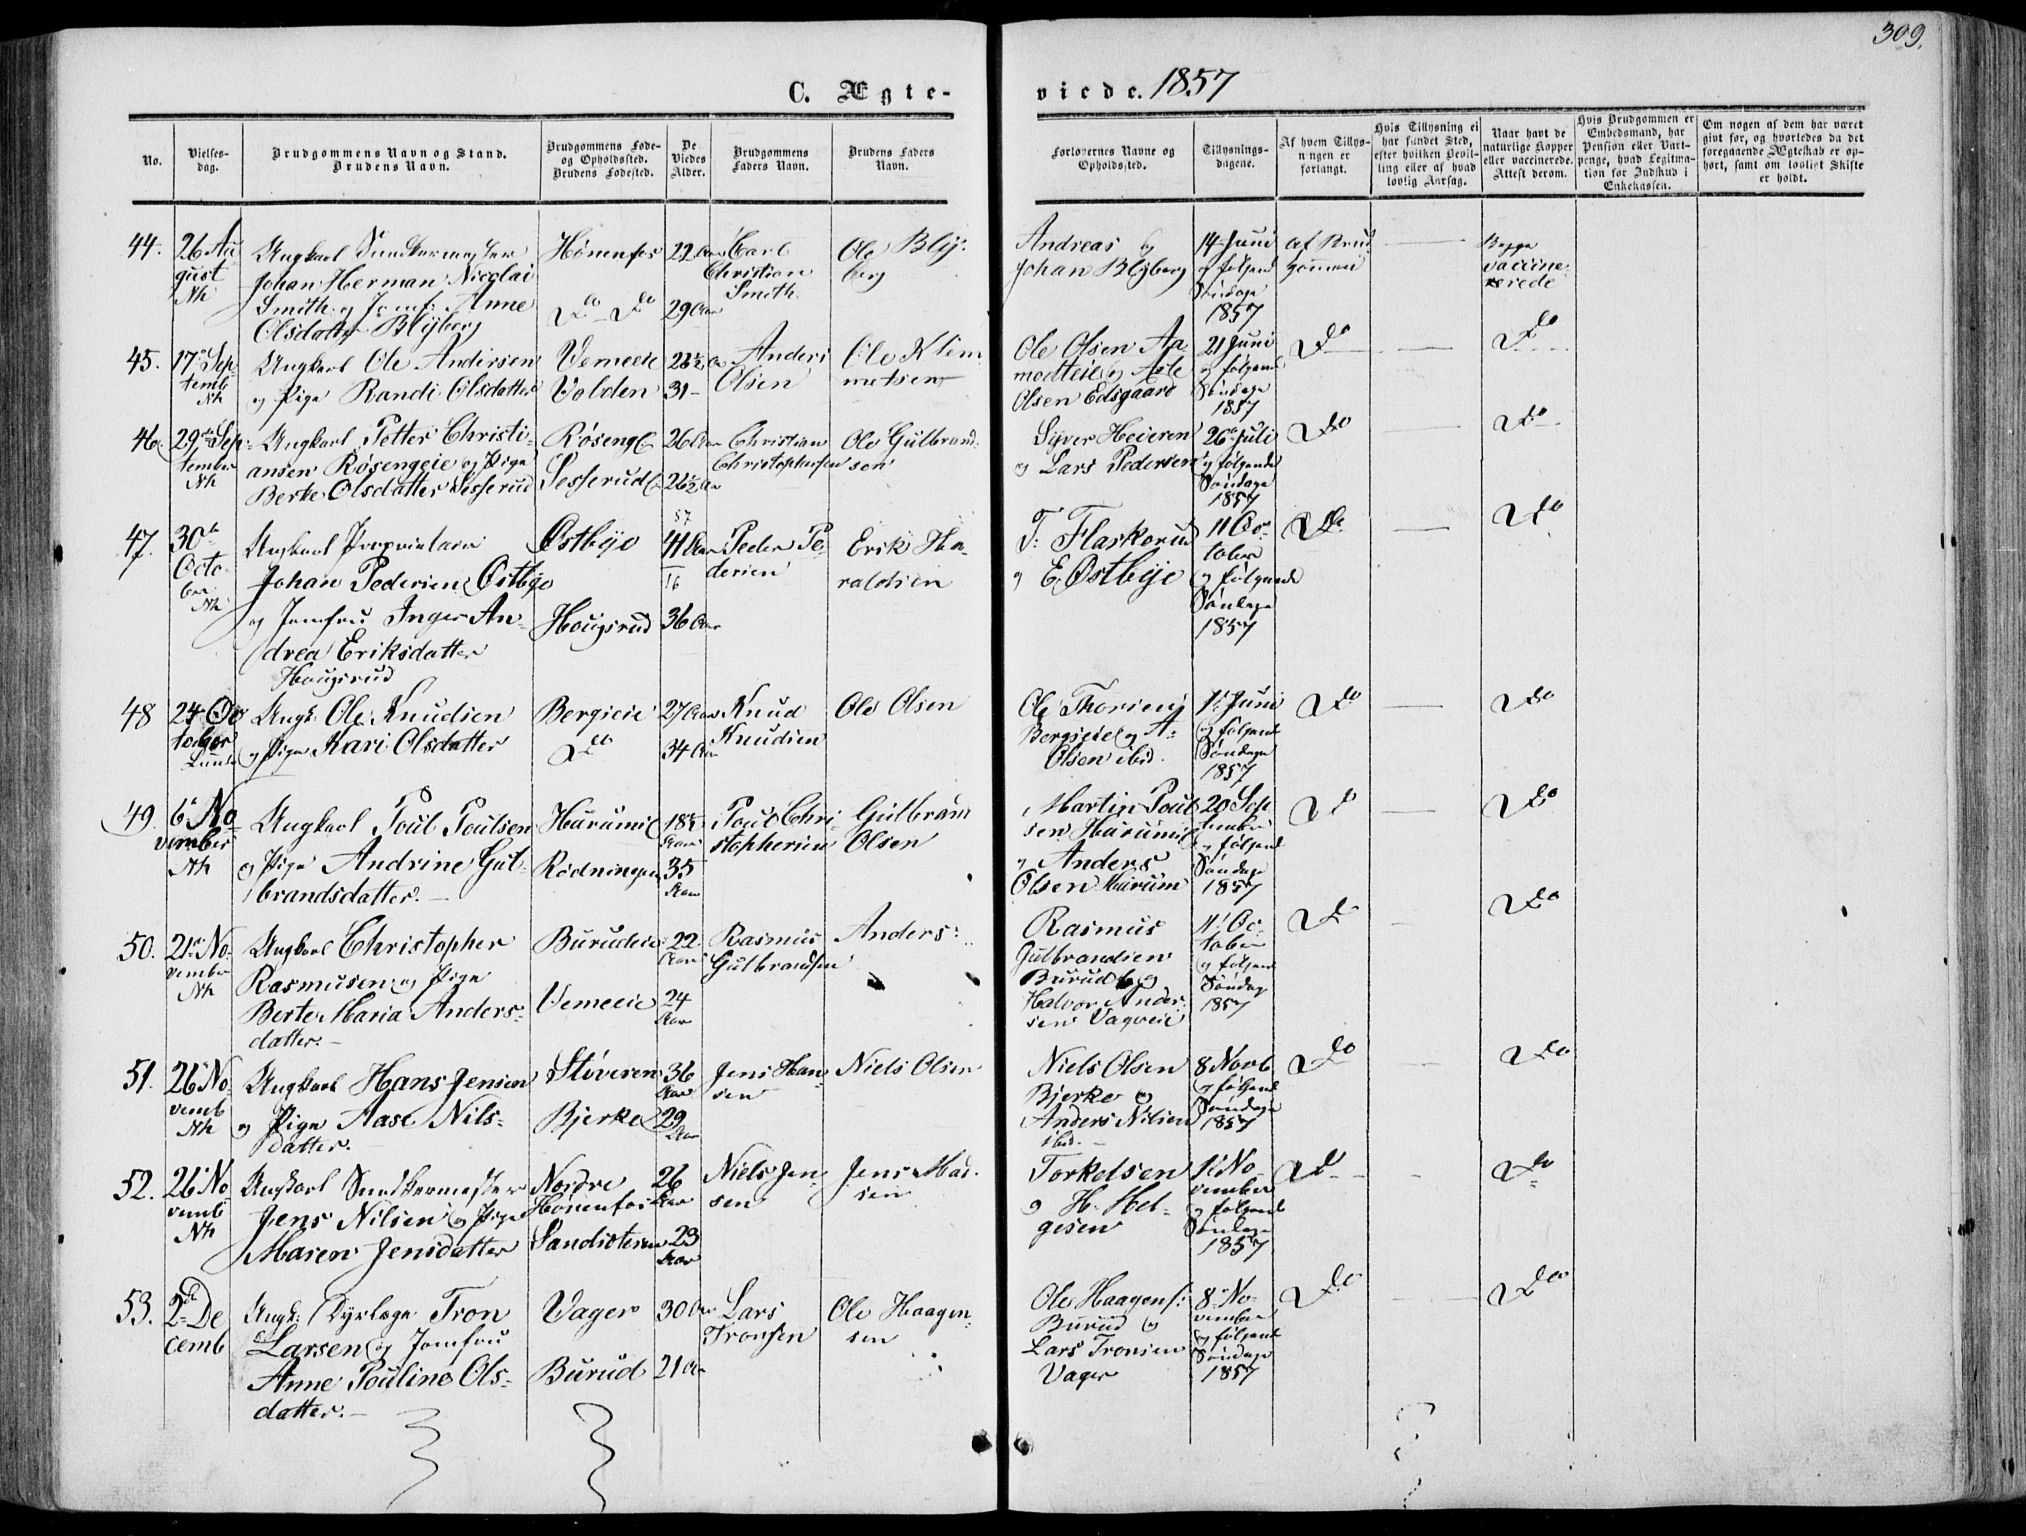 309.
C. Ægte-
viede. 1857
No.
Vielses-
dag.
Brudgommens Navn og Stand.
Brudens Navn.
Brudgommens Føde-
og Opholdssted.
Brudens Fødested.
De
Viedes
Alder.
Brudgommens
Faders Navn.
Brudens Faders
Navn.
Forlovernes Navne og
Opholdssted.
Tillysnings-
dagene.
Af hvem Tillys-
ningen er
forlangt.
Hvis Tillysning ei
har fundet Sted,
efter hvilken Bevil-
ling eller af hvad
lovlig Aarsag.
Naar havt de
naturlige Kopper
eller vaccinerede.
Attest derom.
Hvis Brudgommen er
Embedsmand, har
Pension eller Vart-
penge, hvad Legitima-
tion for Indskud i
Enkekassen.
Om nogen af dem har været
givt før, og hvorledes da det
foregaaende Ægteskab er op-
hørt, samt om lovligt Skifte
er holdt.
44.
26 Au
gust
Nh
Ungkarl Snedkermester
Johan Herman Nicolai
Smith og Jomf. Anne
Olsdatter Blyberg
Hønefos
Do Do
22 Aar
29 Aar
Carl
Christian
Smith
Ole Bly-
berg
Andreas og
Johan Blyberg
14 Juni
og følgend
Søndage
1857
af Brud
gommen
Begge
vaccine
rede
45.
17 Sep
temb
Nh
Ungkarl Ole Andersen
og Pige Randi Olsdatter
Vemeeie
Volden
31
Anders
Olsen
Ole Klem
metsen
Ole Olsen Aa
modteie og Asle
Olsen Edsgaard
21 Juni
og følgend
Søndage
1857
Do
Do
46.
29 Sep
tember
Nh
Ungkarl Petter Christi-
ansen Røsengeie og Pige
Berte Olsdatter Sesserud
Røseng
Sesserud
26 Aar
26½ Aar
Christian
Christophersen
Ole Gulbrand-
sen
Syver Heieren
og Lars Pedersen
26 Juli
og følgende
Søndage
1857
Do
Do
47.
30
Octo
ber
Nh
Ungkarl Proprietair
Johan Pedersen Østbye
og Jomfru Inger An-
drea Eriksdatter
Hougsrud
Østbye
Hougsrud
57
41 Aar
16
36 Aar
Peder Pe-
dersen
Erik Ha-
raldsen
T: Flaskerud
og E. Østbye
11 Oc-
tober
og følgende
Søndage
1857
Do
Do
48
24 Oc
tober
Ungk: Ole Knudsen
og Pige Kari Olsdatter
Bergseie
Do
27 Aar
34 Aar
Knud
Knudsen
Ole Olsen
Ole Thorsens
Bergseie og A-
Olsen ibid.
1 Juni
og følgend
Søndage
1857
Do
Do
49.
6 No
vember
Nh
Ungkarl Poul Poulsen
og Pige Andrine Gul-
brandsdatter.
Harumie
Rødningen
35
Aar
Poul Chri-
stophersen
Gulbrand
Olsen
Martin Poul
sen Harumie
og Anders
Olsen Harum
20 Sep
tember
og følgend
Søndage
1857
Do
Do
50.
21 No-
vember
Nh
Ungkarl Christopher
Rasmusen og Pige
Berte Maria Anders-
datter.
Burudeie
Vemeeie
22
Aar
24
Aar
Rasmus
Gulbrandsen
Anders
Rasmus
Gulbrandsen
Burud og
Halvor Ander
sen Vageeie
11 Oc-
tober
og følgend
Søndag
1857
Do
Do
51.
26 No-
vemb
Nh
Ungkarl Hans Jensen
og Pige Aase Nils-
datter.
Støveren
Bjerke
36
Aar
29
Aar
Jens Han-
sen
Niels Olsen
Niels Olsen
Bjerke og
Anders Nilsen
ibid.
8 Novb
og følgend
Søndage
1857
Do
Do
52.
26 No
vemb
Nh
Ungkarl Snedkermester
Jens Nilsen og Pige
Maren Jensdatter
Nordre
Hønenfos
26
Aar
23
Aar
Niels Jen-
sen
Jens Mad-
sen
Torkelsen
og H. Hel-
gesen
No-
vember
og følgend
Søndage
1857
Do
Do
53.
2 De
cemb
Ungk: Dyrlæge Tron
Larsen og Jomfru
Anne Pouline Ols-
datter.
Vager
Burud
30 Aar
21 Aar
Lars
Tronsen
Ole Haagen-
sen
Ole Haagens:
Burud og
Lars Tronsen
Vager
8 No-
vember
og følgend
Søndage
1857
Do
Do